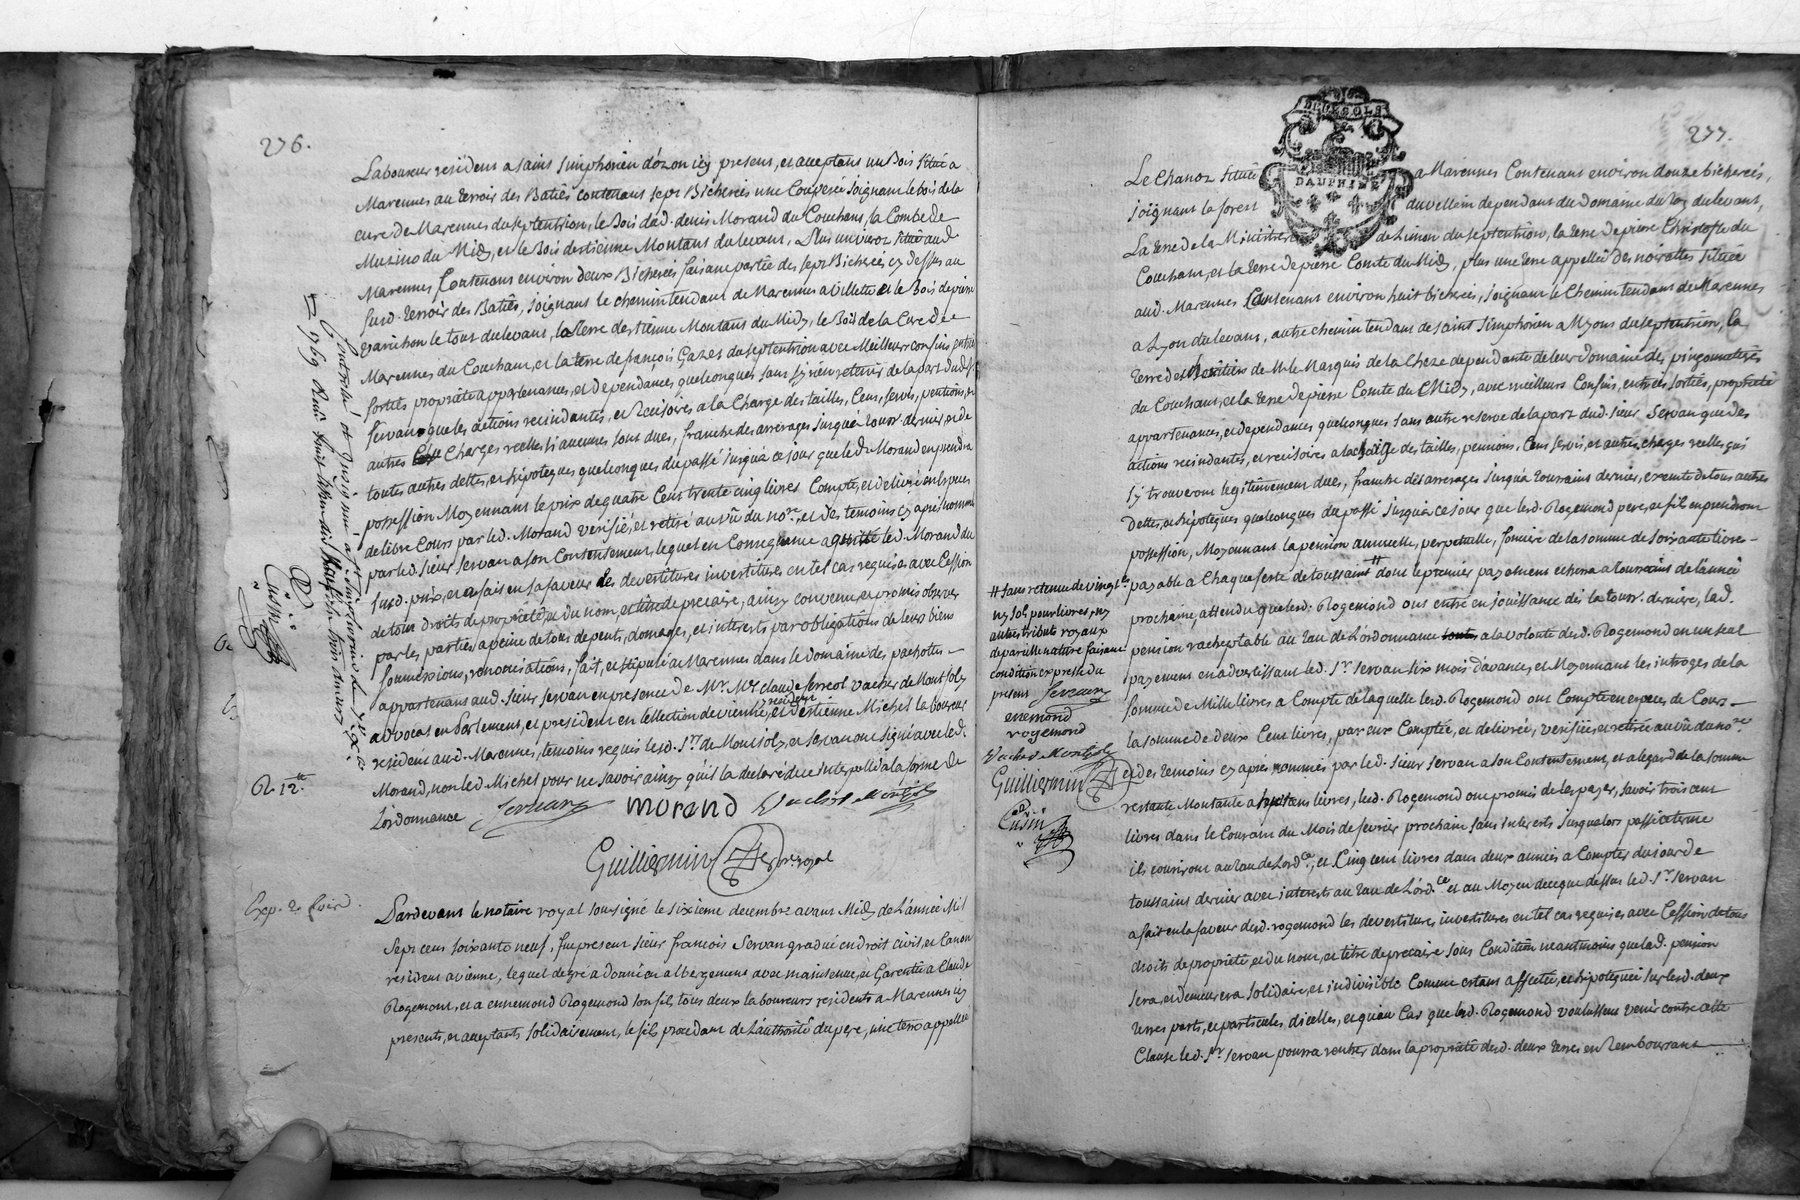 276.
Laboureur resident a saint Simphorien d'ozon icy present, et acceptant un Bois situé a
Marennes au terroir des Batiës contenant sept Bicherées une Couperée joignant le bois de la
cure de Marennes du septentrion, le Bois dud. denis Morand du Couchant, la Combe de
Muzino du Midy, et le Bois destienne Montant du levant, Plus un viron situé aud
Marennes Contenant environ deux Bicherées faisant partie des sept Bicherées cy dessus au
susd. terroir des Batiës, joignant le chemin tendant de Marennes a Villette et le Bois de pierre
varichon le tout du levant, la terre destienne Montant du Midy, le Bois de la Cure de
Marennes du Couchant, et la terre de françois Gazet du septentrion avec Meilleurs confins entrées
sorties propriété appartenances, et dependances quelconques sans sy rien retenir de la part dud. Sr
Servan que les actions recindantes, et recisoires a la Charge des tailles, Cens, servis, pentions, et
autres Charges reelles sy aucunes sont dues, franche des arrerages jusqu'a tousst. dernier, et de
toute autres dettes, et hipoteques quelconques du passé jusqua ce jour que led. Morand en prendra
possession Moyennant le prix de quatre Cent trente cinq livres Compté, et delivré en especes
de libre Cours par led. Morand verifié, et retiré au vû du nore, et des temoins cy apres nommés
par led. sieur Servan a son Contentement, lequel en Consequence a quitté led. Morand du
susd. prix, et a fait en sa faveur les devestitures investitures en tel cas requises avec Cession
de tout droits de propriété, et du nom, et titre de precaire, ainsy convenu, et promis observer
par les parties a peine de tous depents, domages, et interests par obligations de leurs biens
soumissions, renonciations, fait, et stipulé a Marennes dans le domaine des pachottes
appartenant aud. sieur Servan en presence de Mr. Me. claude ferreol vacher de Montjoly
advocat en Parlement, et president en l'ellection de vienne, y resident et d'estienne Michel laboureur
resident aud. Marennes, temoins requis lesd. Srs de Montjoly, et Servan ont signé avec led.
Morand, non led Michel pour ne savoir ainsy qu'il la declaré de ce interpellé a la forme de
L'ordonnance Servan morand Vacher Montjoly
Guilliermin nre royal
Controllé et insinué a st. simphorien d'ozon
1769 Reçu
Cusin
R. 12.tt
Exp. 2 fois
Pardevant le notaire royal soussigné le sixieme decembre avant Midy de L'année Mil
Sept cens soixante neuf, fut present sieur françois Servan gradué en droit civil, et Canon
resident a vienne, lequel de gré a donné en albergement avec maintenue, et Garentie a Claude
Rogemont, et a ennemond Rogemond son fils, tous deux laboureurs residents a Marennes icy
presents, et acceptants solidairement, le fils procedant de L'authorité du pere, une terre appellée
277.
DAUPHINÉ
Le Chanoz située a Marennes Contenant environ douze bicherées,
joignant la forest du vellein dependant du Domaine du Roy du levant,
La terre de la Ministrerie de Limon du septentrion, la terre de pierre Christoffe du
Couchant, et la terre de pierre Comte du Midy, plus une terre appellée des noirattes située
aud. Marennes Contenant environ huit bicherées, joignant le Chemin tendant de Marennes
a Lyon du levant, autre chemin tendant de saint simphorien a Myons du septentrion, la
terre des heritiers de M. le Marquis de la Cheze dependante de leur domaine des pingonnetieres
du Couchant, et la terre de pierre Comte du Midy, avec meilleurs Confins, entrées sorties, propriété
appartenances, et dependances quelconques sans autre reserve de la part dud. sieur Servan que des
actions recindantes, et recisoires a la charge des tailles, pensions, Cens servis, et autres charges reelles qui
s'y trouveront legitimement dues, franche des arrerages jusqu'a toussains dernier, exempte de tous autres
Dettes, et hipoteques quelconques du passé jusqua ce jour que lesd. Rogemond pere, et fils en prendront
possession, Moyennant la pension annuelle, perpetuelle, fonciere de la somme de soixante livres
payable a Chaque feste de toussaint # dont le premier payement echerra a toussaint de L'année
prochaine, attendu que lesd. Rogemond ont entré en jouissance dès la touss. derniere, lad.
pension rachetable au taux de L'ordonnance a la volonté desd. Rogemond en un seul
payement en advertissant led. Sr. Servan six mois d'avance, et Moyennant les introges de la
somme de Mille livres a Compte de laquelle lesd. Rogemond ont Compté en especes de Cours
la somme de deux Cent livres, par eux Comptée, et delivrée, verifiée, et retirée au vû du nore
et des temoins cy apres nommés par led. sieur Servan a son Contentement, et a legard de la somme
restante Montante a huit cent livres, lesd. Rogemond ont promis de les payer, savoir trois cent
livres dans le Courant du Mois de fevrier prochain sans interets jusqualors passé ce terme
ils couriront au taux de Lordce, et Cinq cent livres dans deux années a Compter du jour de
toussains dernier avec interests au taux de L'ordce. et au Moyen de ce que dessus led. Sr. Servan
a fait en la faveur desd. rogemond les devestitures, investitures en tel cas requises avec Cession de tous
droits de propriété, et du nom, et titre de precaire sous Condition neantmoins que lad. pension
sera, et demeurera solidaire, et indivisible Comme estant affectée, et hipotequée sur lesd. deux
terres parts, et particules, dicelles, et qu'en Cas que lesd. Rogemond voulussent venir contre cette
Clause led. Sr. Servan pourra rentrer dans la propriété desd. deux terres en Remboursant
# sans retenue de vingte.
ny sols pour livres, ny
autres tributs royaux
de pareille nature faisant
condition expresse du
present Servan
enemond
rogemond
Vacher Montjoly
Guilliermin
Cusin